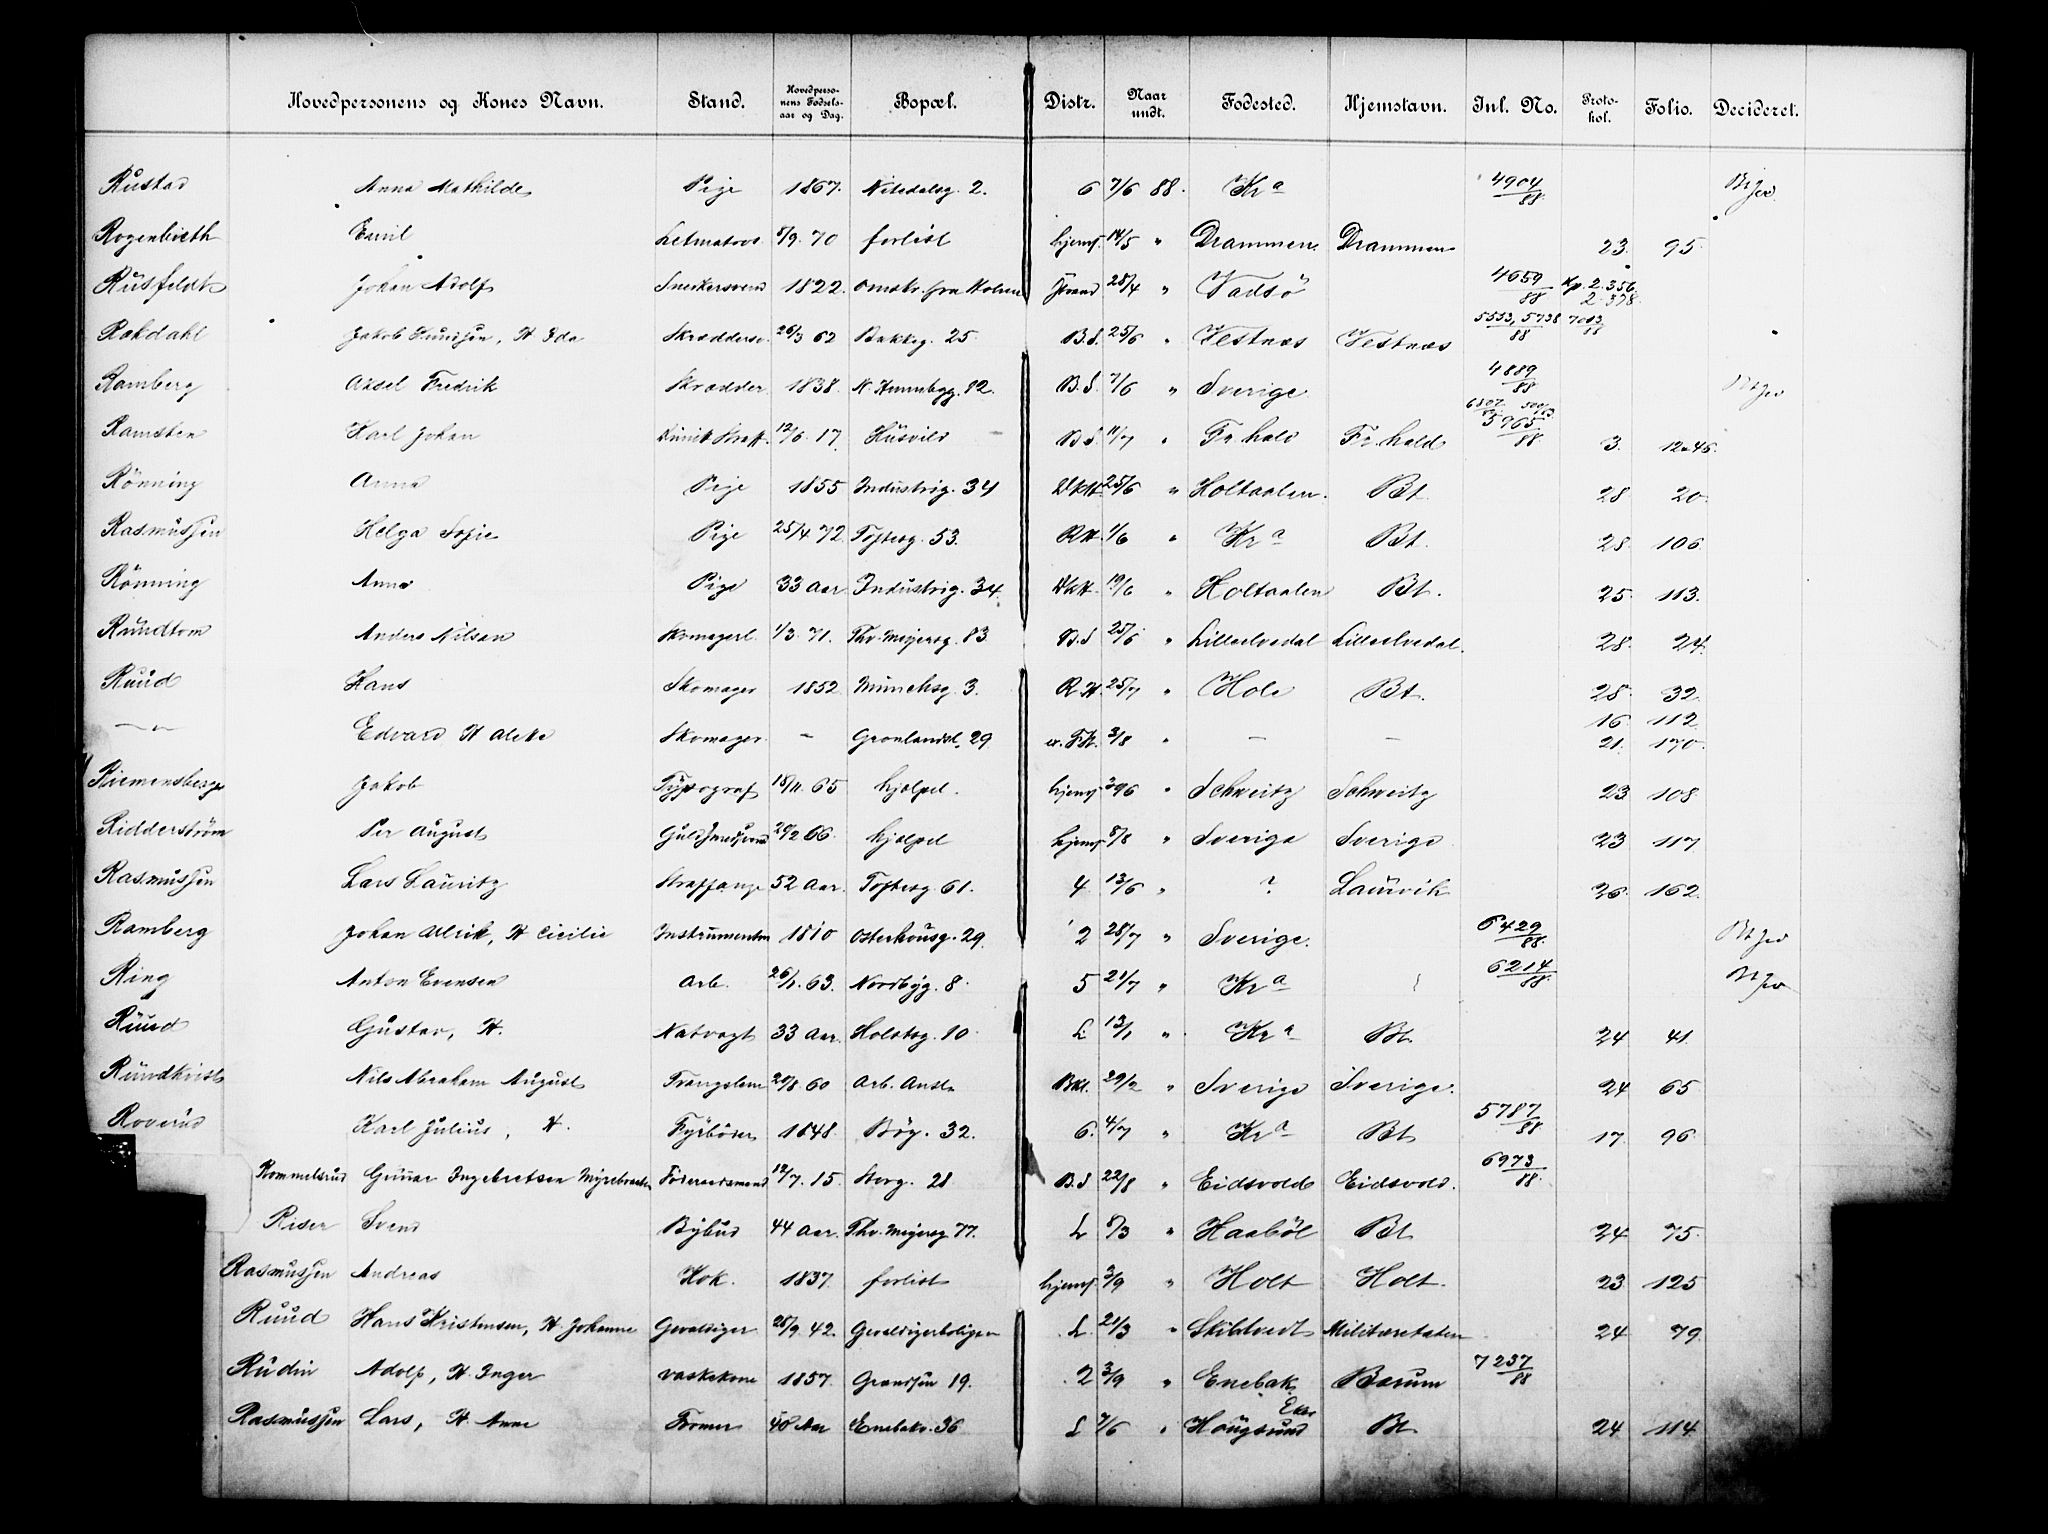 Hovedpersonens og Kones Navn. Stand. Hovedpersonens Fødselsaar og Dag. Bopæl. Distr. Naar undt. Fødested. Hjemstavn. Inl. No. Protokol. Folio. Decideret.
Rustad Anna Mathilde Pige 1867. Nitedalsg. 2. 6 7/6 88. Kra 4904/88
Emil 5/9. 70 forlist hjems. 14/5 " Drammen Drammen 23. 95.
Rusfeldt Johan Adolf Snedkersvend 1822. 28/4 " Vadsö 4659/88 Kp. 2. 356. 2. 378.
Rakdahl Jakob Knudsen, H Ida 26/3 62 Bakkeg. 25. B.S. 25/6 " Vestnæs Vestnæs 5553, 5738/88
Ramberg Axel Fredrik Skrædder 1838. B.S. 7/6 " Sverige 4889/88
Ramsten Karl Johan 12/6. 17. Husvild B.S. 11/7 " Fr.hald Fr.hald 5965/88 3.
Rönning Anna Pige 1855 Industrig. 34 25/6 " Holtaalen. Bt. 28. 20.
Rasmussen Helga Sofie Pige 25/4 72. Tofteg. 53. R.H. 1/6 " Kra Bt. 28. 106.
Rönning Anna Pige 33 Aar Industrig. 34. 19/6 " Holtaalen Bt. 25. 113.
Rundtom Anders Nilsen Skomagerl. 1/3. 71. Thv. Meyersg. 83 B.S 25/6 " Lilleelvedal Lilleelvedal. 28. 24.
Ruud Hans Skomager 1852. Munchsg. 3. R.H. 25/7 " Hole Bt. 28. 32.
— " — Edvard H Skomager. - Grønlandsl. 29 3/8 " - - 16. 112. 21. 170.
Riemensberger Jakob Typograf 18/11. 65 hjælpet. hjems. " Schweitz Schweitz 23 108.
Ridderström Per August 20/2 66. hjælpet hjems. 8/8 " Sverige Sverige 23 117
Rasmussen Lars Lauritz Straffange 52 Aar. Tofteg. 61. 4. 13/6 " ? Laurvik 26. 162.
Ramberg Johan Ulrik, H Cicilie 1810 Osterhausg. 29. 2 28/7 " Sverige. 6429/88.
Ring Anton Evensen Arb. 26/1. 63. Nordbyg. 8. 5 21/7 " Kra 6214/88.
Ruud Gustav, H. Natvagt 33 Aar. Holstsg. 10. L 13/1 " Kra Bt. 24 41.
Rundkvist Nils Abraham August 20/8 60 Arb. Anst. 29/2 " Sverige Sverige. 24 65
Roverud Karl Julius, H. Fyrböder 1848. Bög. 32. 6. 4/7 " Kra Bt. 5787/88 17. 96.
Rommelsrud Gunnar Ingebretsen Föderaadsmand 12/7. 15. Storg. 28 B.S 22/8 " Eidsvold Eidsvold. 6973/88.
Riser Svend Bybud 44 Aar. Thv. Meyersg. 77. L 8/3 " Haaböl Bt. 24 75.
Rasmussen Andreas Kok. 1837. forlist hjems. 3/9 " Holt Holt. 23 125
Ruud Hans Kristensen, H. Johanne Gevaldiger 28/9. 42. Gevaldigerboligen L. 21/3 " Skibtvedt Militæretaten 24 79.
Rudin Adolf, H. Inger vaskekone 1857. Grændsen 19. 2 3/9 " Enebak. Bærum 7237/88
Rasmussen Lars, H. Anne Tromer 40 Aar Enebakv. 36 L 7/6 " Hougsund Eker Bt. 24 114.